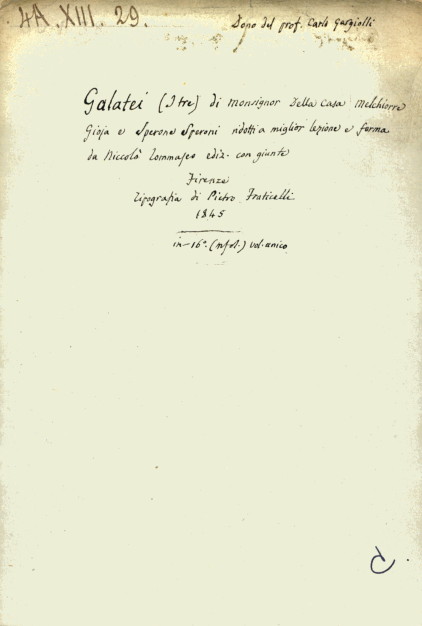 4A. XIII. 29.
Dono del prof. Carlo Gargiolli
Galatei (I tre) di Monsignor Della Casa Melchiorre
Gioja e Sperone Speroni ridotti a miglior lezione e forma
da Niccolò Tommaseo ediz. con giunte
Firenze
Tipografia di Pietro Fraticelli
1845
in-16°. vol. unico